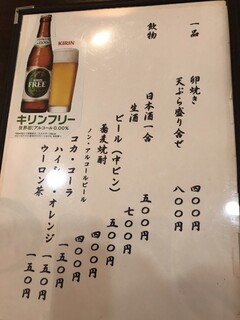 一品
卵焼き 四〇〇円
天ぷら盛り合せ 八〇〇円
飲物
日本酒一合 五〇〇円
生酒 七〇〇円
ビール(中ビン) 五〇〇円
蕎麦焼酎 四〇〇円
ノン・アルコールビール 四〇〇円
コカ・コーラ 一五〇円
ハイ・オレンジ 一五〇円
ウーロン茶 一五〇円
KIRIN
FREE
キリンフリー
世界初!アルコール0.00%